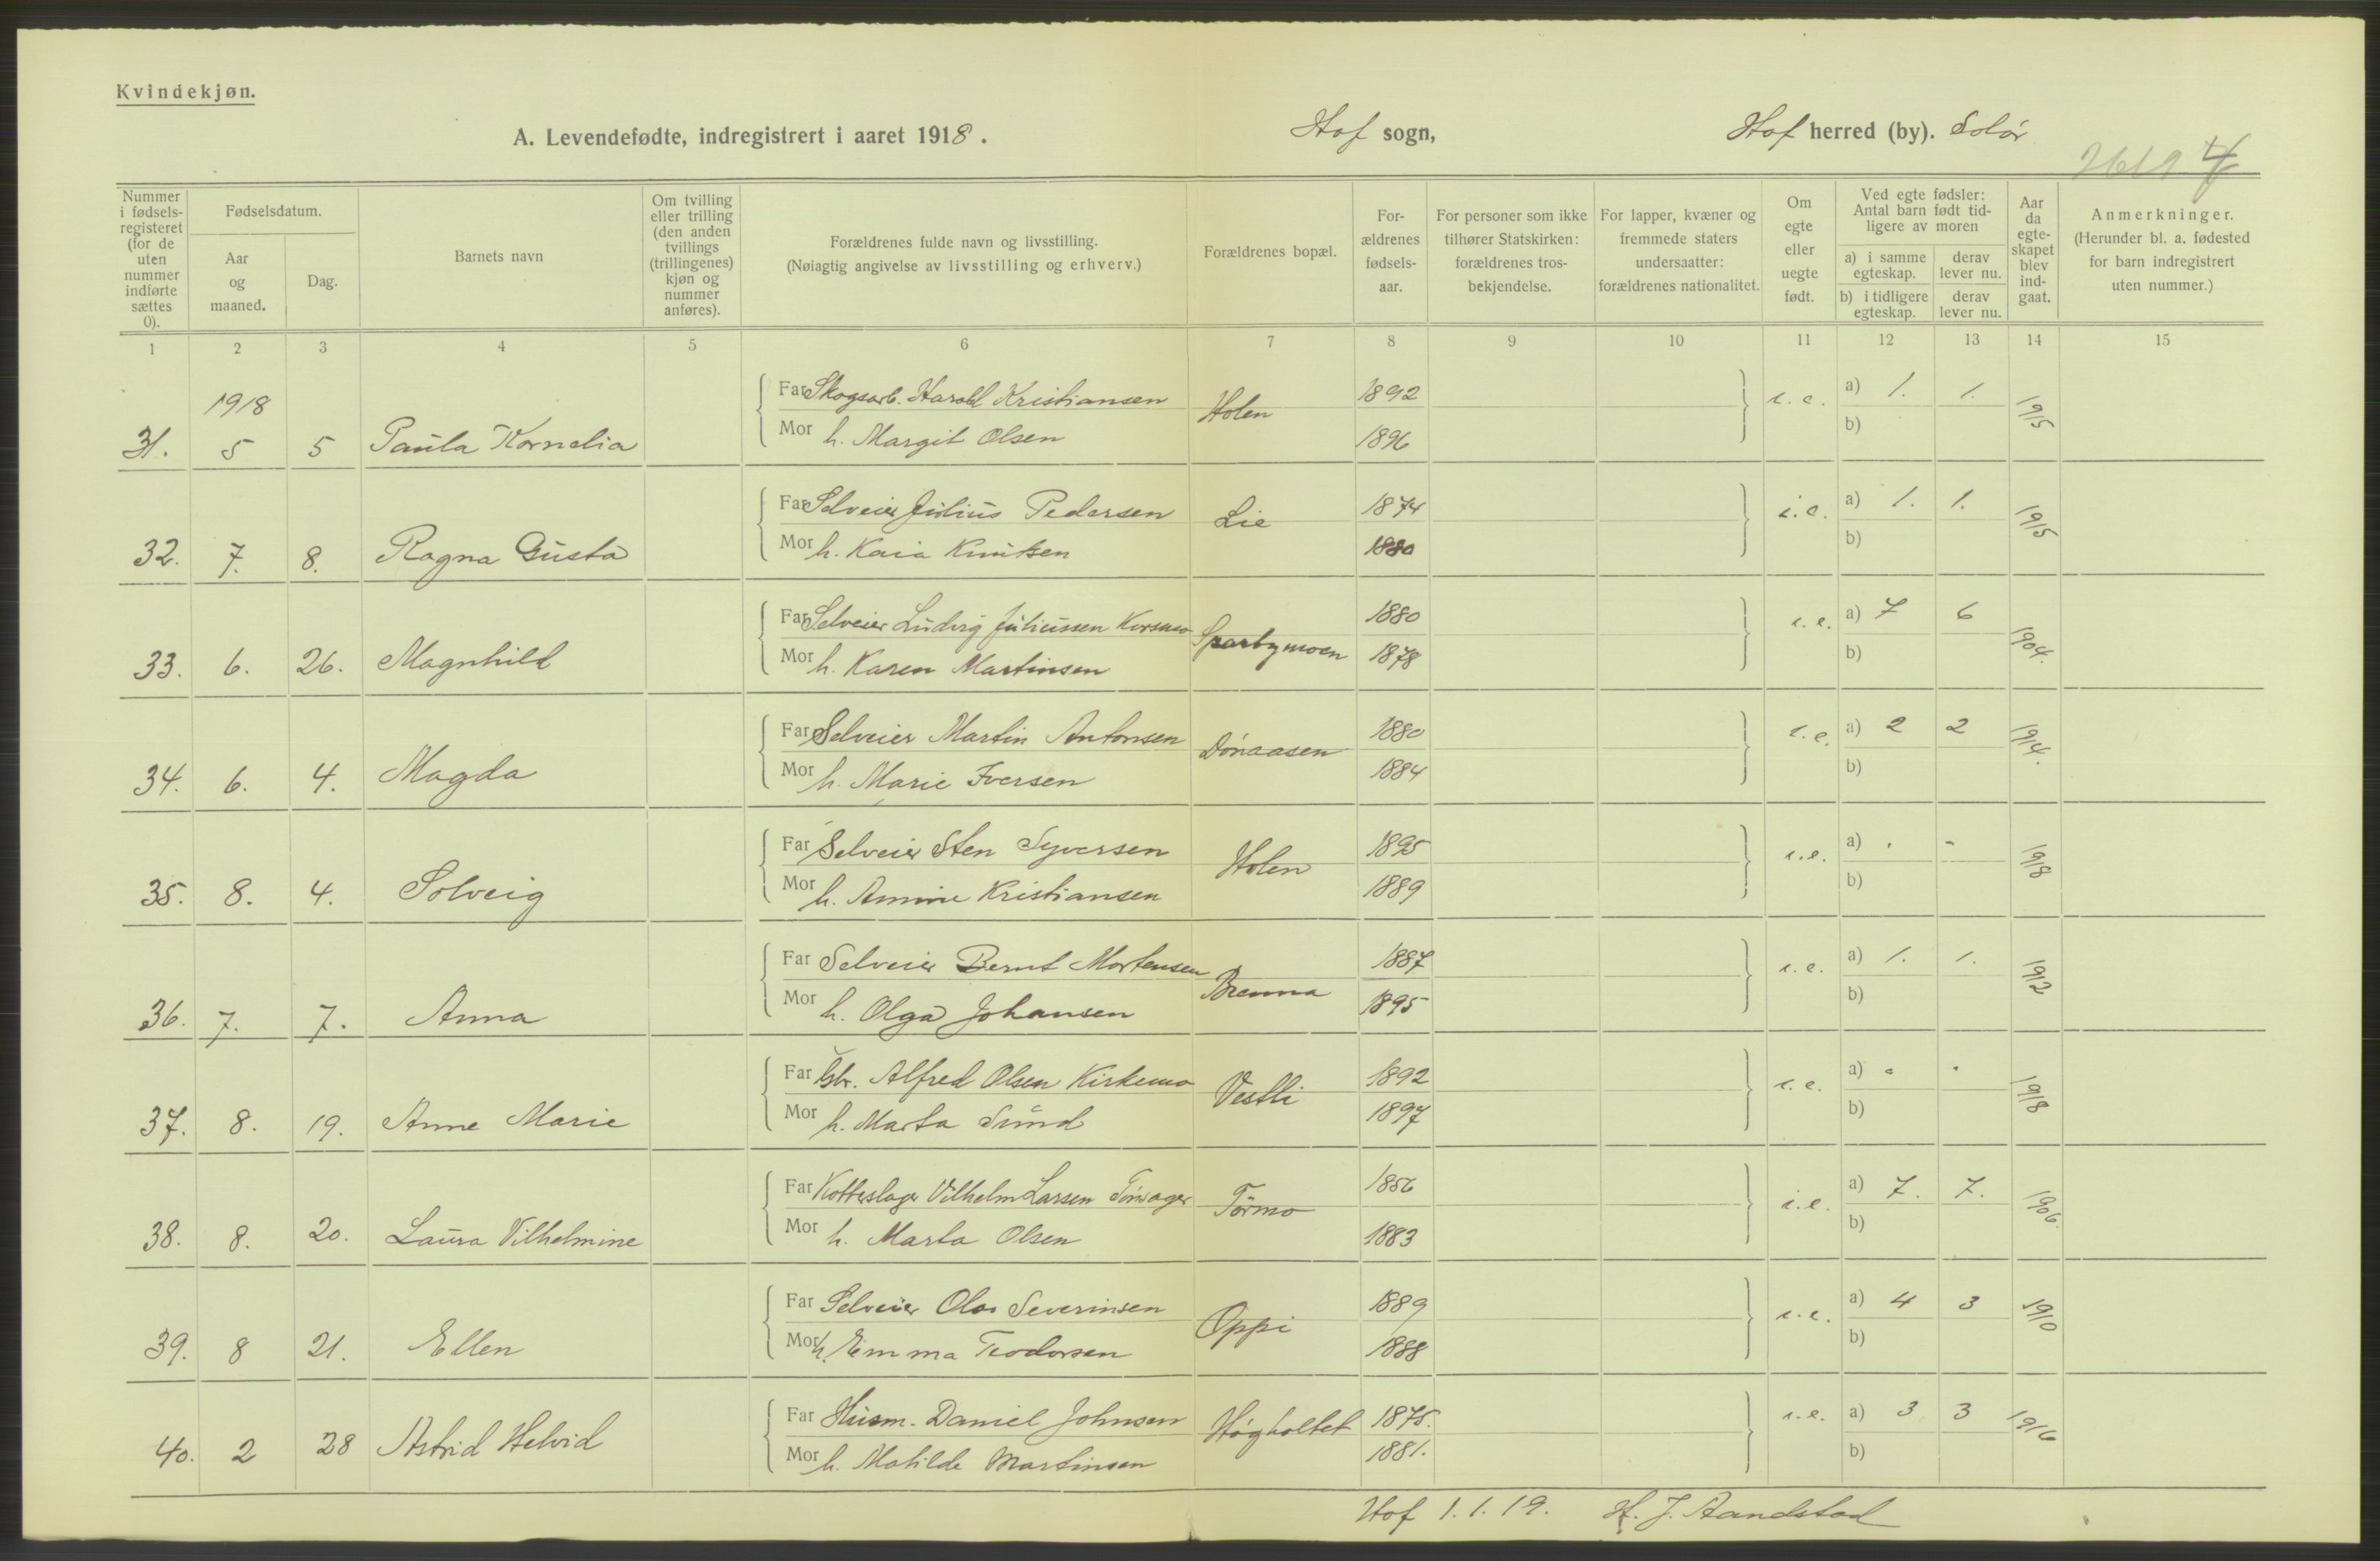 Kvindekjøn.
A. Levendefødte, indregistrert i aaret 1918.
Hof sogn,
Hof herred (by). Solør
Nummer i fødsels-registeret (for de uten nummer indførte sættes 0).
Fødselsdatum.
Aar og maaned.
Dag.
Barnets navn
Om tvilling eller trilling (den anden tvillings (trillingenes) kjøn og nummer anføres).
Forældrenes fulde navn og livsstilling.
(Nøiagtig angivelse av livsstilling og erhverv.)
Forældrenes bopæl.
For-ældrenes fødsels-aar.
For personer som ikke tilhører Statskirken: forældrenes tros-bekjendelse.
For lapper, kvæner og fremmede staters undersaatter: forældrenes nationalitet.
Om egte eller uegte født.
Ved egte fødsler: Antal barn født tid-ligere av moren
a) i samme egteskap.
derav lever nu.
b) i tidligere egteskap.
derav lever nu.
Aar da egte-skapet blev ind-gaat.
Anmerkninger.
(Herunder bl. a. fødested for barn indregistrert uten nummer.)
1 2 3 4 5 6 7 8 9 10 11 12 13 14 15
1918
Far Skogsarb. Harald Kristiansen Holen 1892 i.e. a) 1. 1. 1915
31. 5 5 Paula Kornelia Mor h. Margit Olsen 1896 b)
Far Selveier Julius Pedersen Lie 1874 i.e. a) 1. 1. 1915
32. 7. 8. Ragna Gusta Mor h. Kaia Knutsen 1880 b)
Far Selveier Ludvig Juliussen Korsmo Sparbymoen 1880 i.e. a) 7 6 1904.
33. 6. 26. Magnhild Mor h. Karen Martinsen 1878 b)
Far Selveier Martin Antonsen Dónaasen 1880 i.e. a) 2 2 1914.
34. 6. 4. Magda Mor h. Marie Iversen 1884 b)
Far Selveier Sten Syversen Holen 1895 i.e. a) . - 1918
35. 8. 4. Solveig Mor h. Ammine Kristiansen 1889 b)
Far Selveier Bernt Mortensen Brenna 1887 i.e. a) 1. 1. 1912
36. 7. 7. Anna Mor h. Olga Johansen 1895 b)
Far Gbr. Alfred Olsen Kirkemo Vestli 1892 i.e. a) . . 1918
37. 8. 19. Anne Marie Mor h. Marta Sund 1897 b)
Far Vilhelm Larsen Törmo 1856 i.e. a) 7. 7. 1906.
38. 8. 20. Laura Vilhelmine Mor h. Marta Olsen 1883 b)
Far Selveier Olav Severinsen Oppi 1889 i.e. a) 4 3 1910
39. 8 21. Ellen Mor h. Emma Teodorsen 1888 b)
Far Husm. Daniel Johnsen Høgholtet 1875. i.e. a) 3 3 1916
40. 2 28 Astrid Helvid Mor h. Matilde Martinsen 1881. b)
Hof 1.1.19. H. J. Aandstad